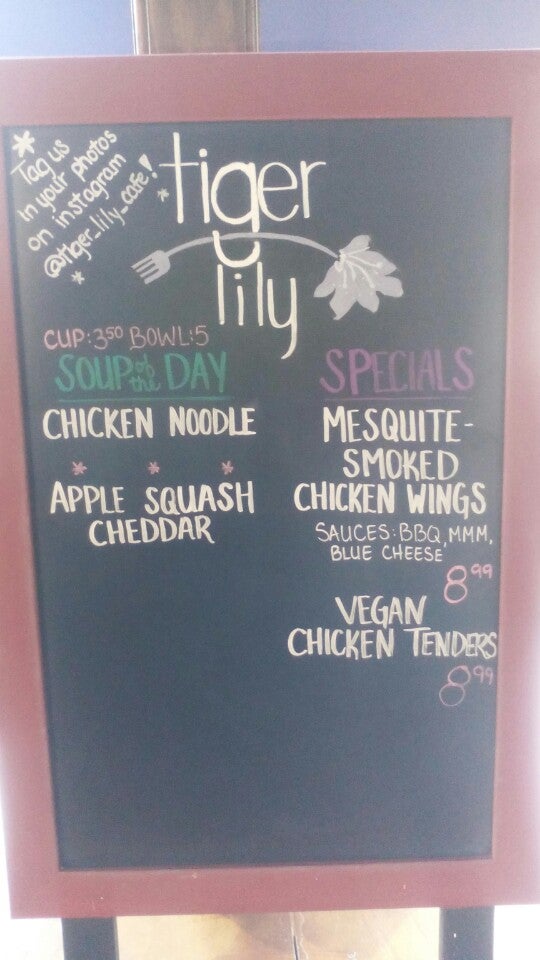 * Tag us
in your photos
on instagram
@tiger_lily_cafe!
tiger
lily
CUP: 3.50 BOWL: 5
SOUP of the DAY
CHICKEN NOODLE
* * *
APPLE SQUASH
CHEDDAR
SPECIALS
MESQUITE-
SMOKED
CHICKEN WINGS
SAUCES: BBQ, MMM,
BLUE CHEESE
8.99
VEGAN
CHICKEN TENDERS
8.99